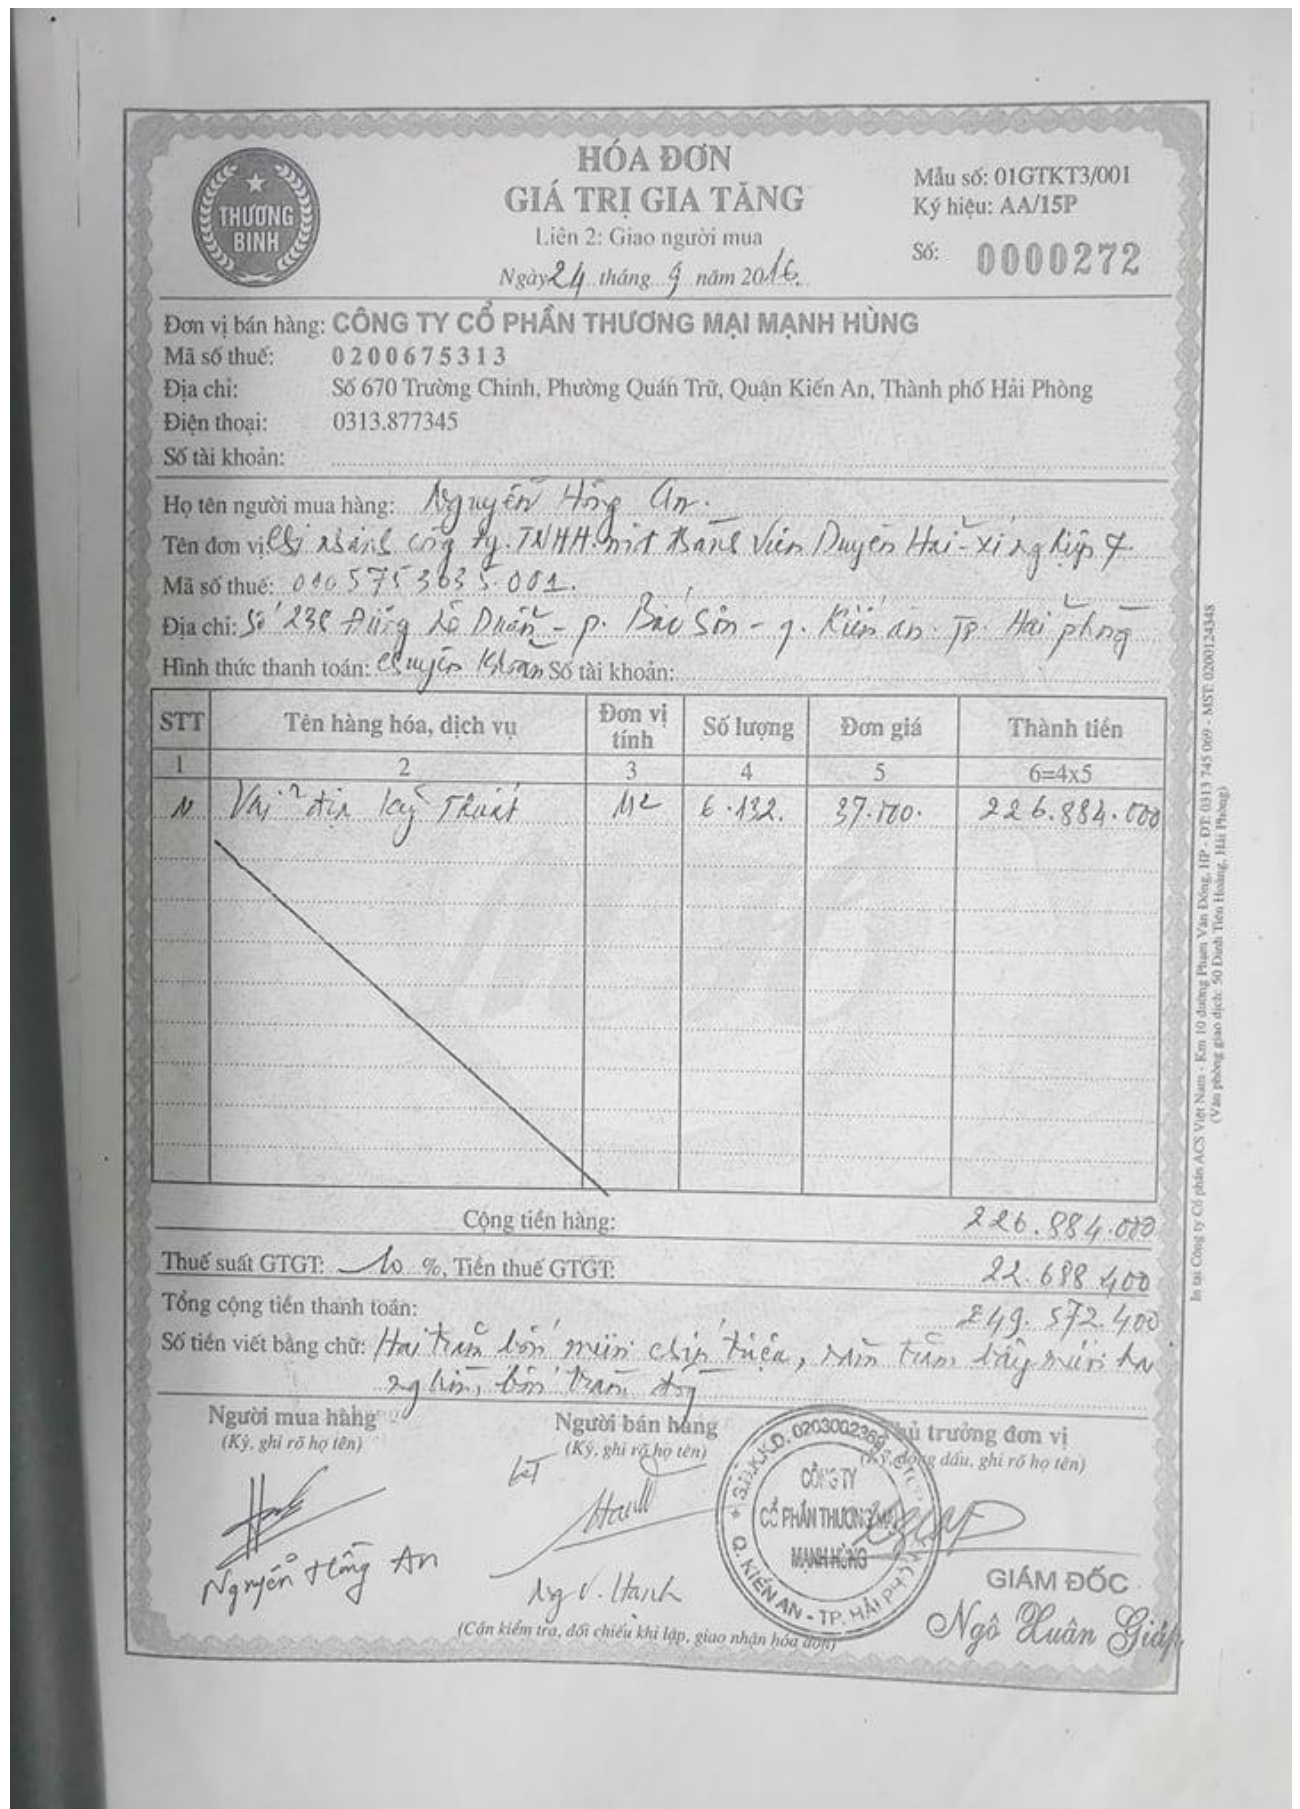 THƯƠNG
BINH
HÓA ĐƠN
GIÁ TRỊ GIA TĂNG
Liên 2: Giao người mua
Ngày 24 tháng 9 năm 2016.
Mẫu số: 01GTKT3/001
Ký hiệu: AA/15P
Số: 0000272
Đơn vị bán hàng: CÔNG TY CỔ PHẦN THƯƠNG MẠI MẠNH HÙNG
Mã số thuế: 0200675313
Địa chỉ: Số 670 Trường Chinh, Phường Quán Trữ, Quận Kiến An, Thành phố Hải Phòng
Điện thoại: 0313.877345
Số tài khoản:
Họ tên người mua hàng: Nguyễn Hồng An.
Tên đơn vị: Chi nhánh công ty TNHH một thành viên Duyên Hải - xí nghiệp 7
Mã số thuế: 0105753635.001.
Địa chỉ: Số 238 Đường Lê Duẩn - p. Bắc Sơn - q. Kiến an. Tp. Hải phòng
Hình thức thanh toán: Chuyển khoản Số tài khoản:
STT Tên hàng hóa, dịch vụ Đơn vị tính Số lượng Đơn giá Thành tiền
1 2 3 4 5 6=4x5
Vải địa kỹ thuật M2 6.132. 37.000. 226.884.000
Cộng tiền hàng: 226.884.000
Thuế suất GTGT: 10 %, Tiền thuế GTGT: 22.688.400
Tổng cộng tiền thanh toán: 249.572.400
Số tiền viết bằng chữ: Hai trăm bốn mươi chín triệu, năm trăm bảy mươi hai
nghìn, bốn trăm đồng
Người mua hàng
(Ký, ghi rõ họ tên)
Nguyễn Hồng An
Người bán hàng
(Ký, ghi rõ họ tên)
Ng V. Hanh
Thủ trưởng đơn vị
(Ký, đóng dấu, ghi rõ họ tên)
S.Đ.K.K.D. 0203002369
CÔNG TY
CỔ PHẦN THƯƠNG MẠI
MẠNH HÙNG
Q. KIẾN AN - TP. HẢI PHÒNG
GIÁM ĐỐC
Ngô Xuân Giáp
(Cần kiểm tra, đối chiếu khi lập, giao nhận hóa đơn)
In tại Công ty Cổ phần ACS Việt Nam - Km 10 đường Phạm Văn Đồng, HP - ĐT: 0313 745 069 - MST: 0200124348
(Văn phòng giao dịch: 50 Đinh Tiên Hoàng, Hải Phòng)